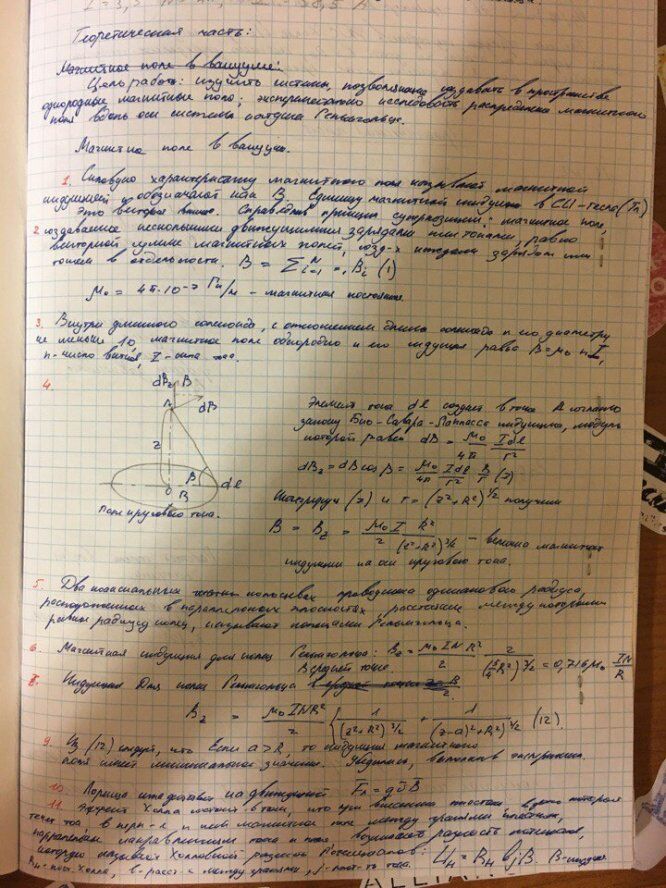 Теоретическая часть:
Магнитное поле в вакууме:
Цель работы: изучить системы, позволяющие создавать в пространстве
однородные магнитные поля; экспериментально исследовать распределение магнитного
поля вдоль оси системы катушек Гельмгольца.
Магнитное поле в вакууме.
1. Силовую характеристику магнитного поля называют магнитной
индукцией и обозначают как B. Единицу магнитной индукции в СИ - тесла (Тл)
Это векторное поле. Справедлив принцип суперпозиции: магнитное поле,
2 создаваемое несколькими движущимися зарядами или токами, равно
векторной сумме магнитных полей, созд-х каждым зарядом или
током в отдельности. B = Σ B_i (1)
μ₀ = 4π·10⁻⁷ Гн/м - магнитная постоянная.
3. Внутри длинного соленоида, с отношением длины соленоида к его диаметру
не меньше 10, магнитное поле однородно и его индукция равна B = μ₀ n I,
n-число витков, I-сила тока.
4.
dB_z B
dB
A
z
β
dl
O
R
Поле кругового тока.
Элемент тока dl создает в точке A согласно
закону Био-Савара-Лапласа индукцию, модуль
которой равен dB = μ₀/4π Idl/r²
dB_z = dB cos β = μ₀/4π Idl/r² R/r (2)
Интегрируя (2) и r = (z²+R²)^1/2 получим
B = B_z = μ₀I/2 R²/(z²+R²)^3/2 - величина магнитной
индукции на оси кругового тока.
5. Два коаксиальных кольцевых проводника одинакового радиуса,
расположенных в параллельных плоскостях, расстояние между которыми
равно радиусу колец, называют кольцами Гельмгольца.
6. Магнитная индукция для колец Гельмгольца: B_z = μ₀INR²/2 2/(5/4R²)^3/2 = 0,716μ₀ IN/R
В средней точке
Индукция для колец Гельмгольца
B_z = μ₀INR²/2 {1/(z²+R²)^3/2 + 1/((z-a)²+R²)^3/2 (12).
9. Из (12) следует, что если a > R, то индукция магнитного
поля имеет минимальное значение.
10. Лоренца
11. Эффект Холла состоит в том, что при внесении пластины, вдоль которой
течет ток, в перп-е к ней магнитное поле между гранями пластины,
параллельн. направлениям тока и поля, возникает разность потенциалов,
которую называют Холловской разность потенциалов: U_H = R_H bjB. B-индукция
R_H-пост. Холла, b-расст-е между гранями, j-плот-ть тока.